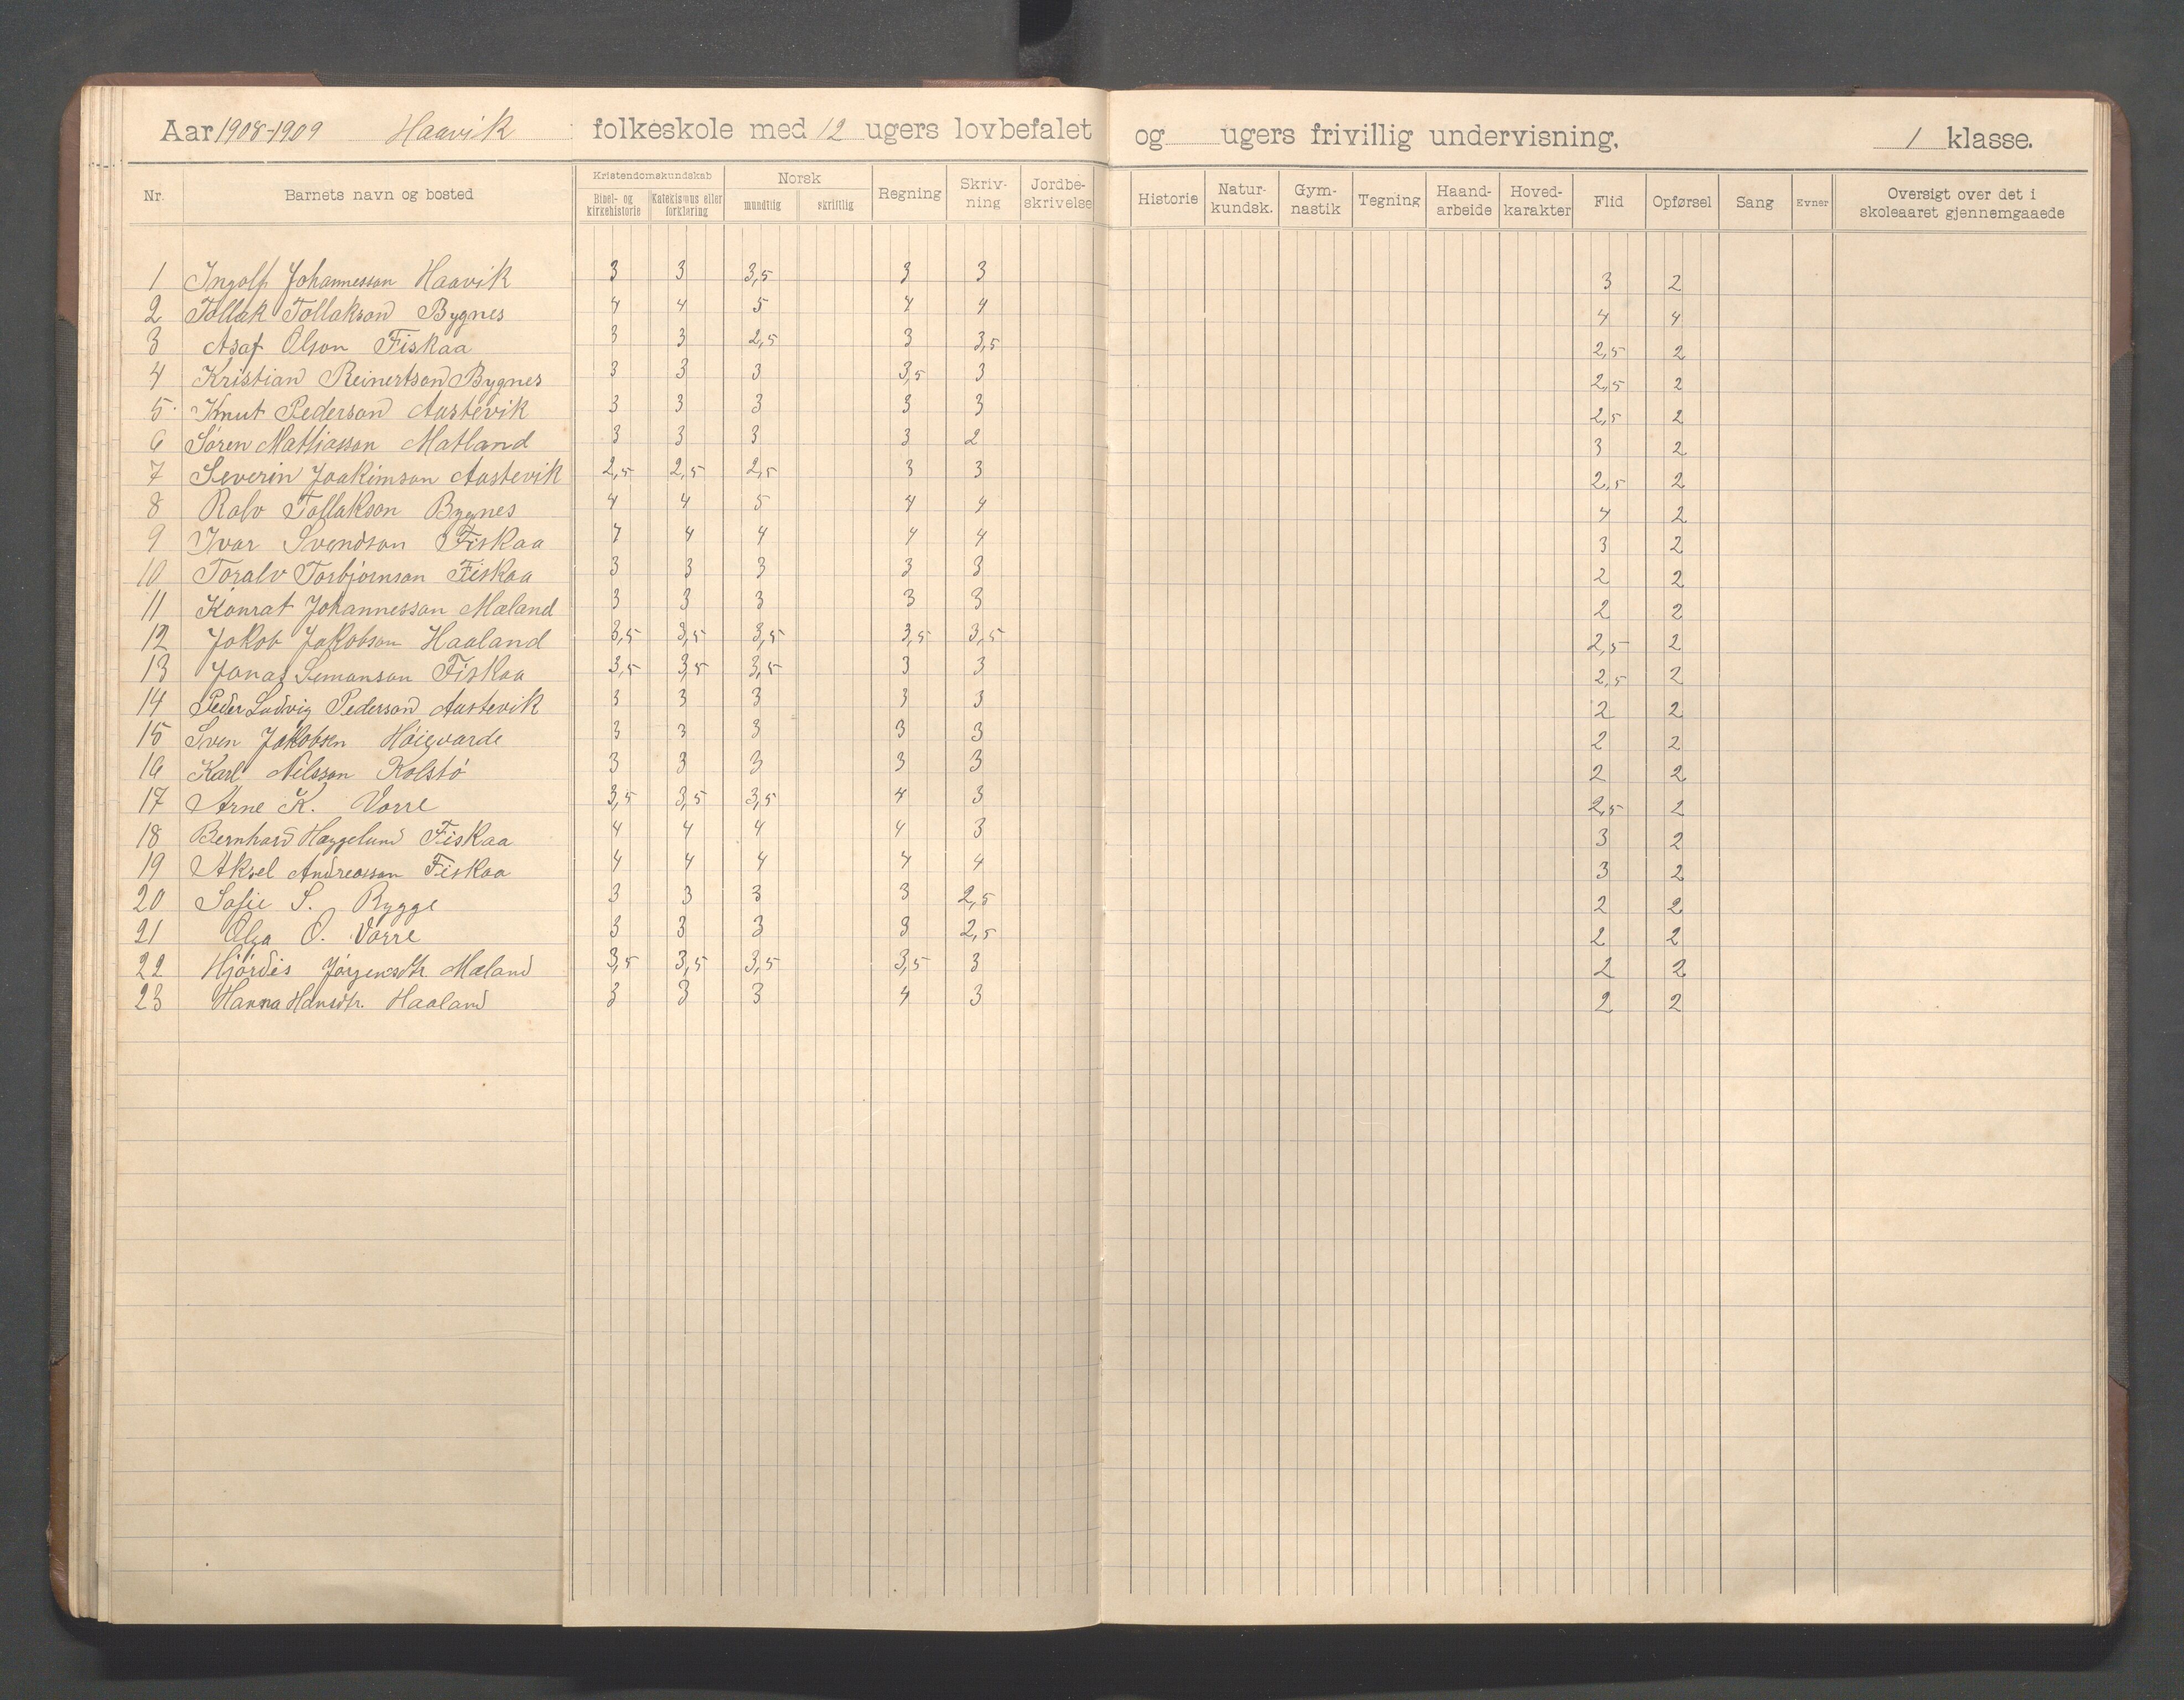 Aar 1908-1909 Haavik folkeskole med 12 ugers lovbefalet og ugers frivillig undervisning. 1 klasse.
Nr. Barnets navn og bosted Kristendomskundskab Bibel- og kirkehistorie Katekismus eller forklaring Norsk mundtlig skriftlig Regning Skriv-ning Jordbe-skrivelse Historie Natur-kundsk. Gym-nastik Tegning Haand-arbeide Hoved-karakter Flid Opførsel Sang Evner Oversigt over det i skoleaaret gjennemgaaede
1 Ingolf Johannesson Haavik 3 3 3,5 3 3 3 2
2 Tollak Tollakson Bygnes 4 4 5 4 4 4 4
3 Asaf Olson Fiskaa 3 3 2,5 3 3,5 2,5 2
4 Kristian Reinertson Bygnes 3 3 3 3,5 3 2,5 2
5 Knut Pederson Austevik 3 3 3 3 3 2,5 2
6 Søren Mattiasson Matland 3 3 3 3 2 3 2
7 Severin Joakimson Austevik 2,5 2,5 2,5 3 3 2,5 2
8 Rolv Tollakson Bygnes 4 4 5 4 4 4 2
9 Ivar Svendson Fiskaa 4 4 4 4 4 3 2
10 Toralv Torbjørnson Fiskaa 3 3 3 3 3 2 2
11 Konrat Johannesson Mæland 3 3 3 3 3 2 2
12 Jakob Jakobson Haaland 3,5 3,5 3,5 3,5 3,5 2,5 2
13 Jonas Semonson Fiskaa 3,5 3,5 3,5 3 3 2,5 2
14 Peder Ludvig Pederson Austevik 3 3 3 3 3 2 2
15 Sven Jakobsen Høigvarde 3 3 3 3 3 2 2
16 Karl Nilsson Kolstø 3 3 3 3 3 2 2
17 Arne K. Vorre 3,5 3,5 3,5 4 3 2,5 2
18 Bernhard Hæggelund Fiskaa 4 4 4 4 3 3 2
19 Aksel Andreasson Fiskaa 4 4 4 4 4 3 2
20 Sofie S. Rygge 3 3 3 3 2,5 2 2
21 Olga O. Vorre 3 3 3 3 2,5 2 2
22 Hjørdis Jørgensdtr Mæland 3,5 3,5 3,5 3,5 3 2 2
23 Hanna Hansdtr. Haaland 3 3 3 4 3 2 2